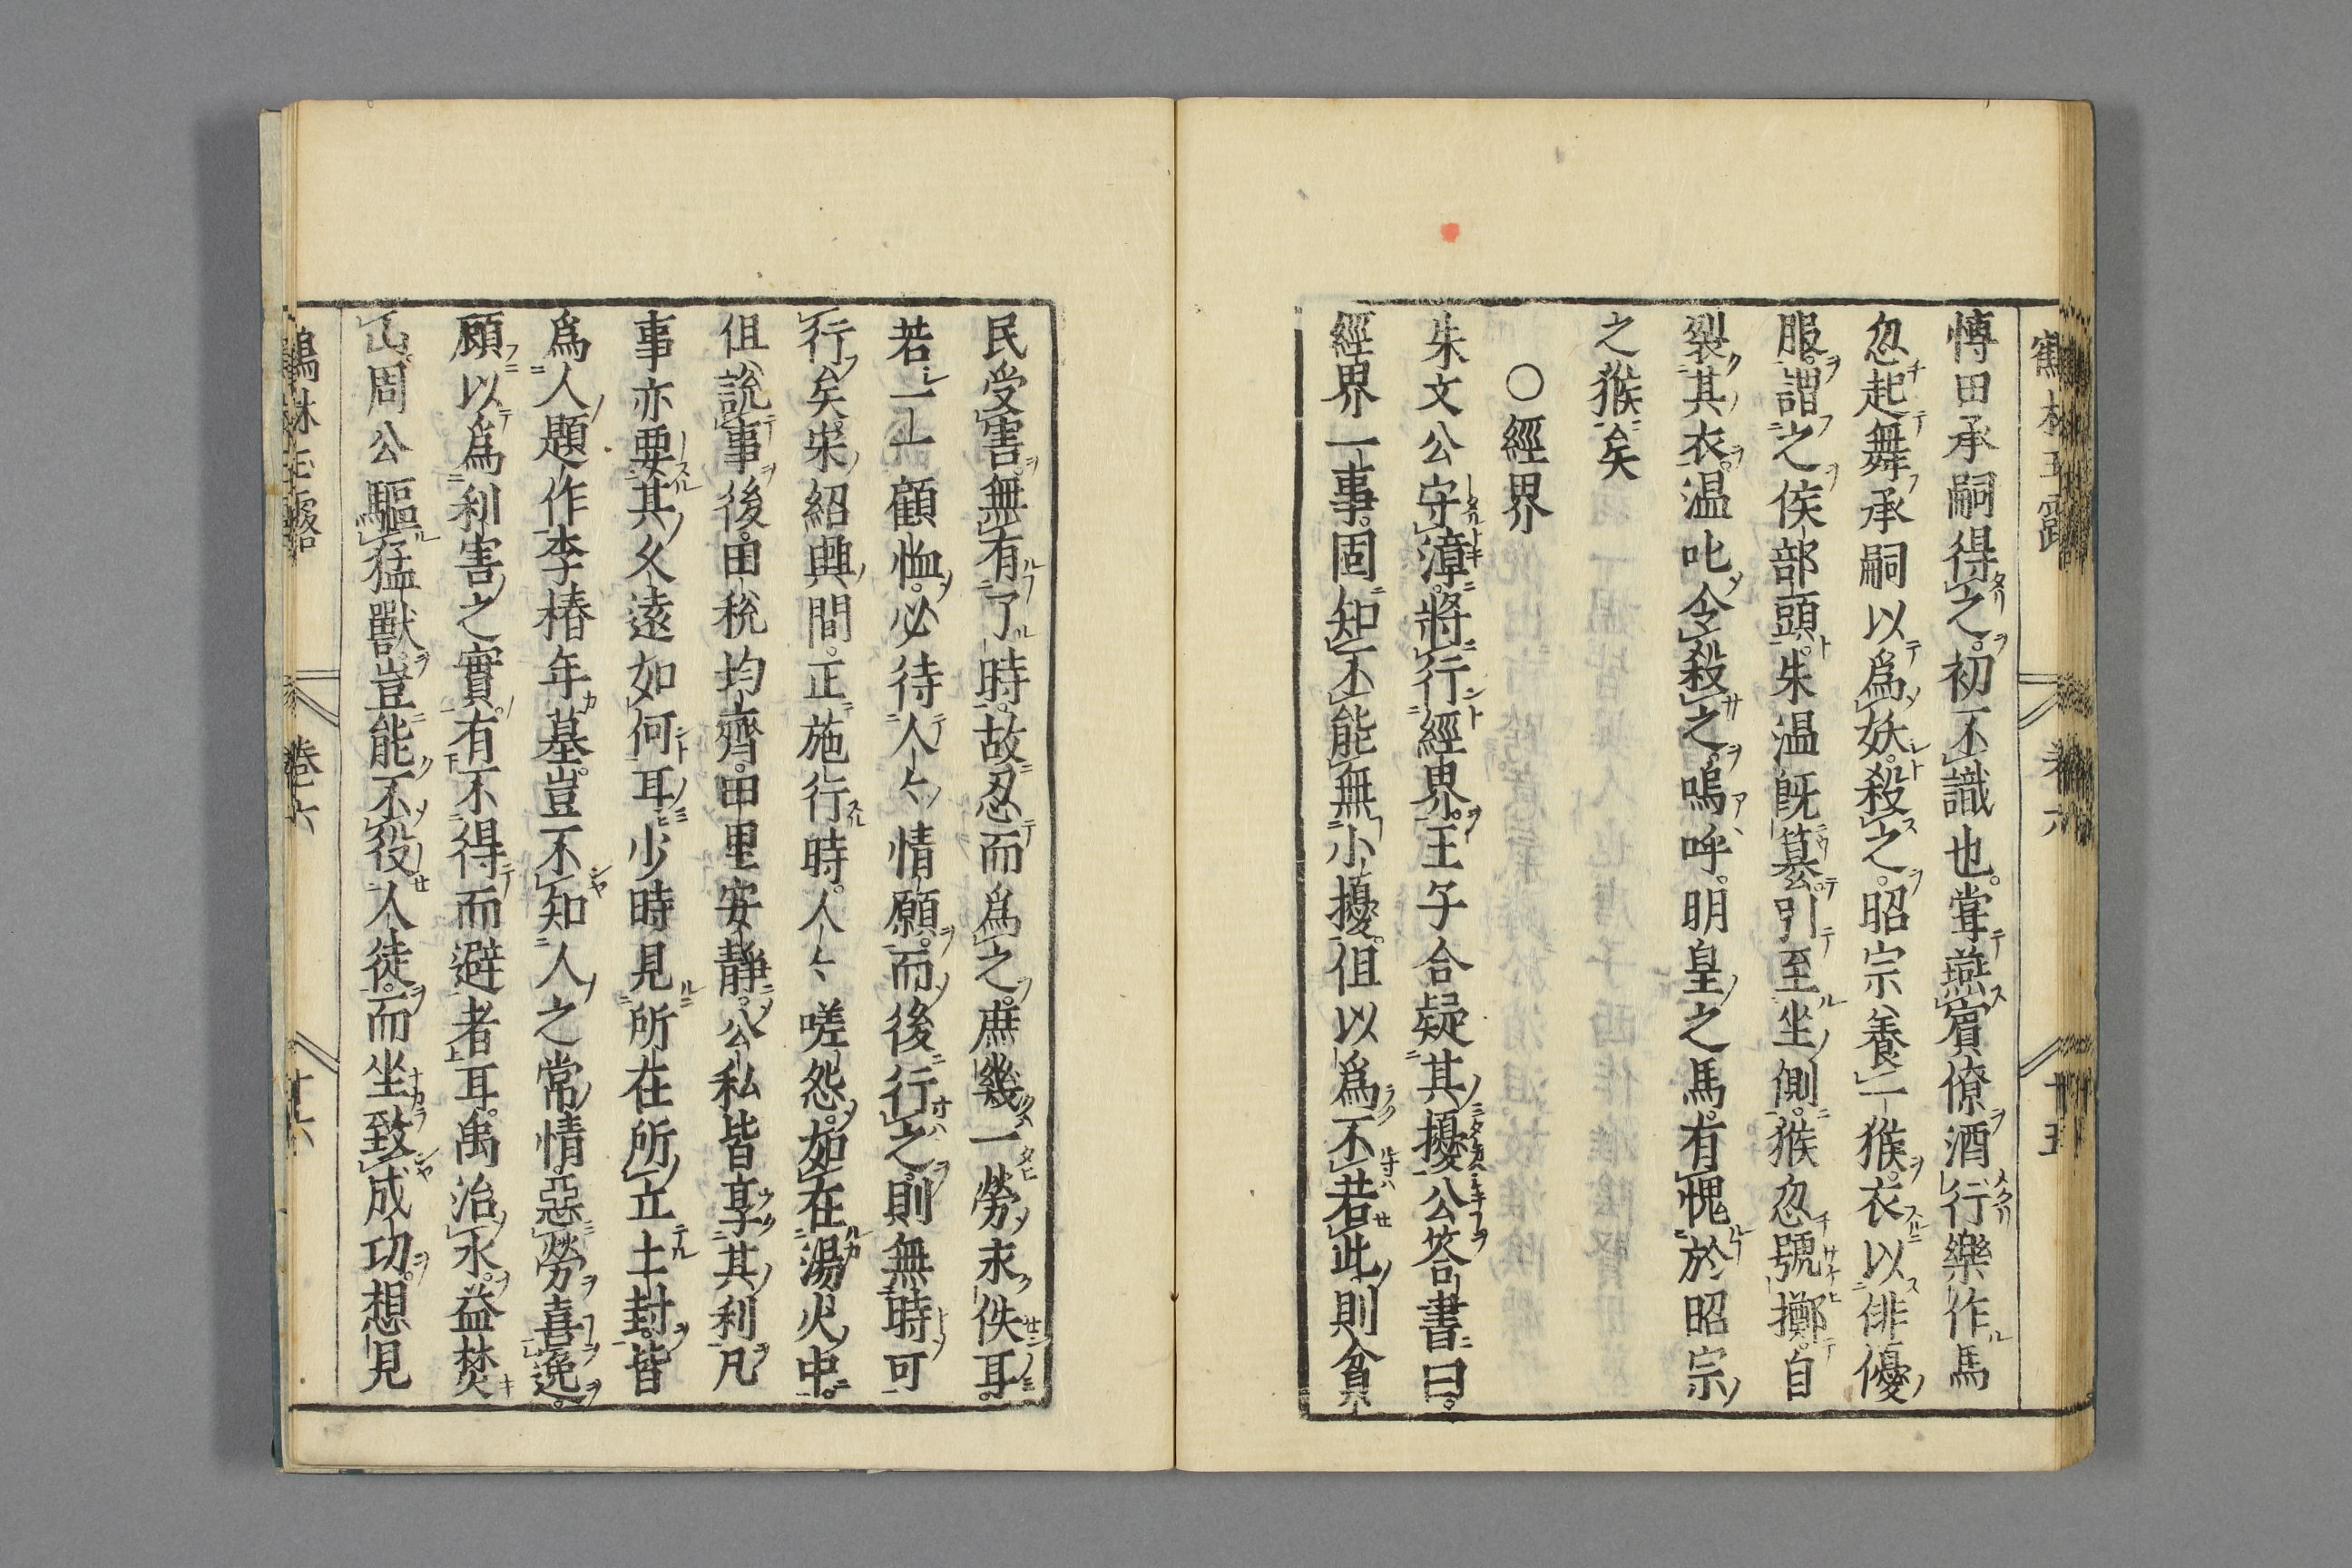 鶴林玉露 卷六 十五
博田承嗣得之。初不識也。甞燕賓僚酒行樂作馬
忽起舞承嗣以爲妖。殺之。昭宗養一猴。衣以俳優
服。謂之侯部頭。朱温旣簒。引至坐側。猴忽號擲。自
裂其衣。温叱令殺之。嗚呼。明皇之馬。有愧於昭宗
之猴矣
○經界
朱文公守漳。將行經界。王子合疑其擾。公答書曰。
經界一事。固知不能無小擾。但以爲不若此。則貧
民受害。無有了時。故忍而爲之。庶幾一勞永佚耳。
若一一顧恤。必待人〻情願。而後行之。則無時可
行矣。宋紹興間。正施行時。人〻嗟怨。如在湯火中。
但說事後。田稅均齊。田里安靜。公私皆享其利。凡
事亦要其久遠如何耳。少時見所在所立土封。皆
爲人題作李椿年墓。豈不知人之常情。惡勞喜逸。
顧以爲利害之實。有不得而避者耳。禹治水。益焚
山。周公驅猛獸。豈能不役人徒。而坐致成功。想見
鶴林玉露 卷六 十六